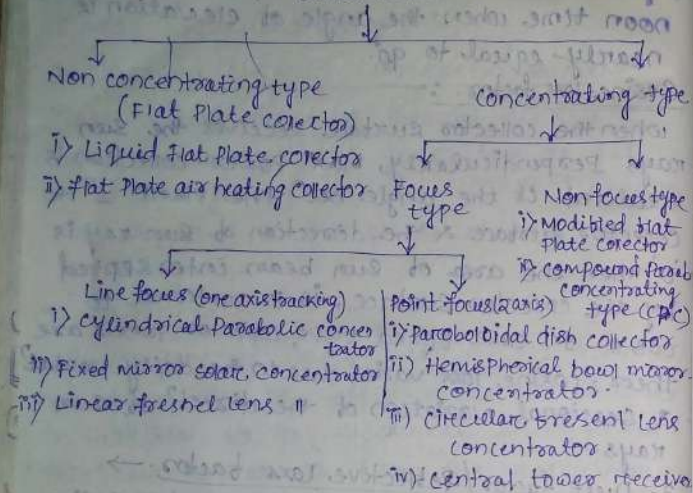 Non concentrating type
(Flat Plate, corector)
i) Liquid flat plate corector
ii) flat Plate air heating collector
concentrating type
Focus
type
Non focus type
i) Modibied blat
Plate corector
ii) compound Parab
concentrating
type (CPC)
Line focus (one axis tracking)
i) cylindrical Parabolic concen
trator
ii) Fixed mirror solar concentrator
iii) Linear, fresnel Lens "
Point focus (2 axis)
i) Parroboloidal dish collector
ii) Hemispherical bowl mirror
concentrator.
iii) circular bresenl Lens
concentrator
iv) central tower receive